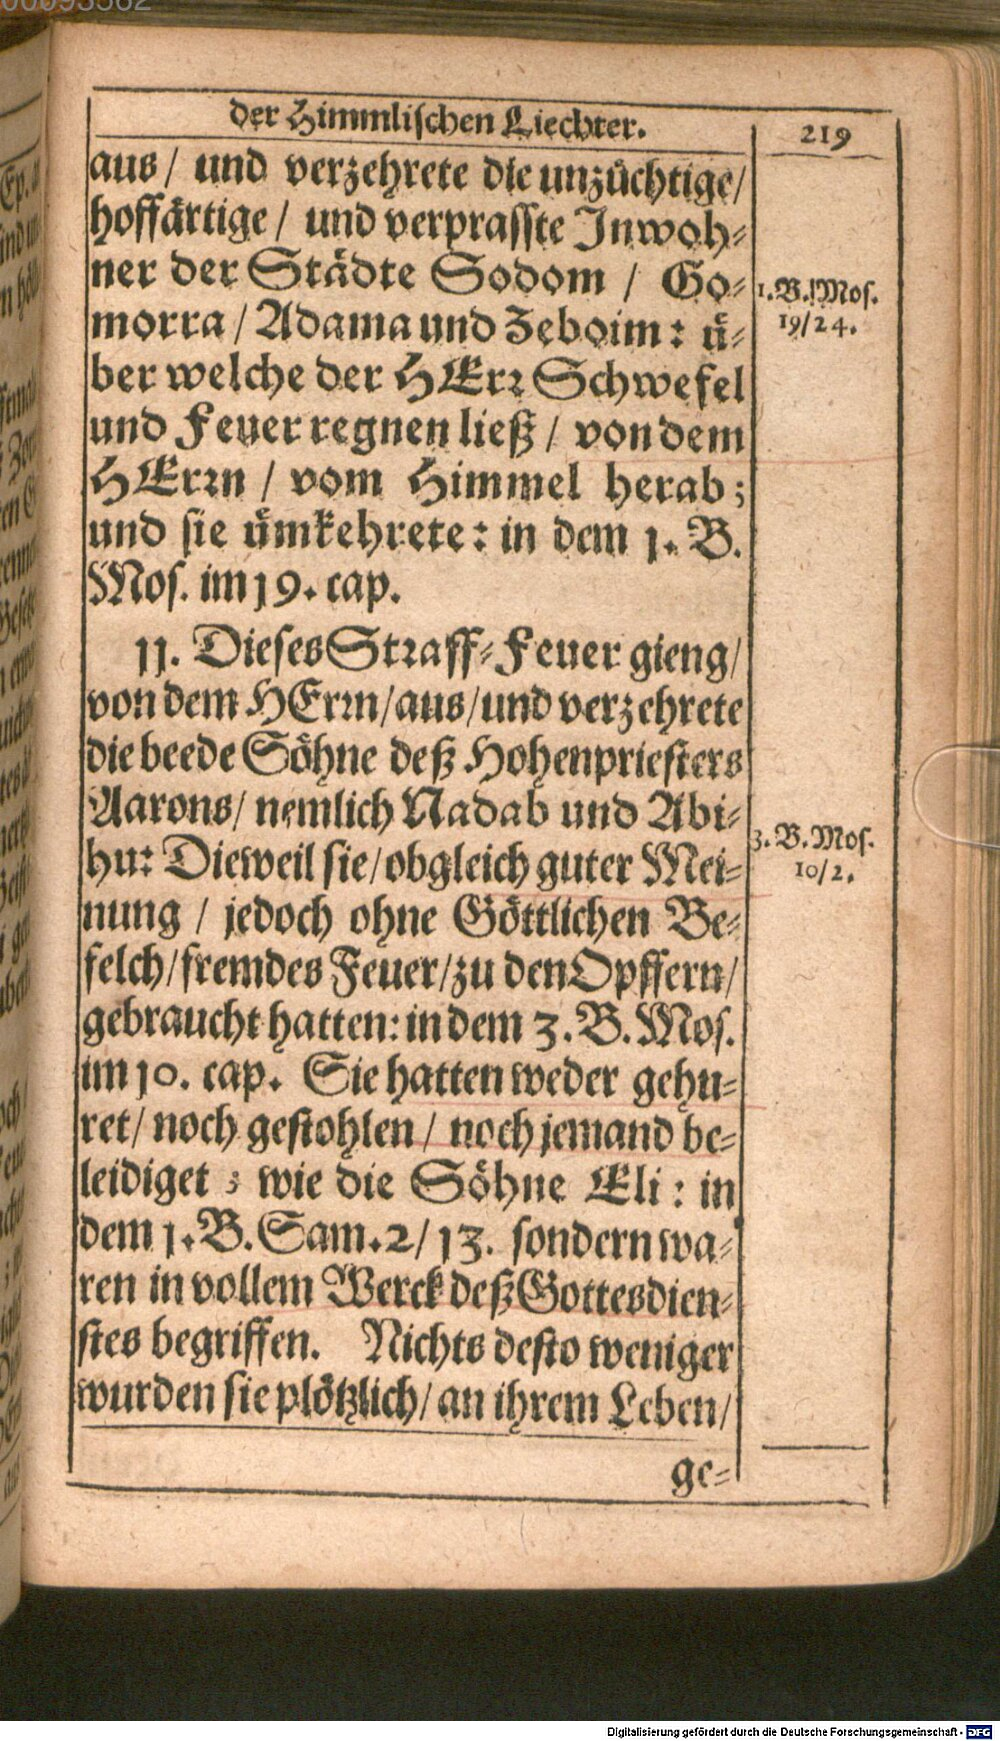 der Himmlischen Liechter.
219
aus / und verzehrete die unzüchtige /
hoffärtige / und verprasste Inwoh-
ner der Städte Sodom / Go-
morra / Adama und Zeboim: ü-
ber welche der HErr Schwefel
und Feuer regnen ließ / von dem
HErrn / vom Himmel herab;
und sie ümkehrete: in dem 1. B.
Mos. im 19. cap.
1. B. Mos.
19/24.
11. Dieses Straff-Feuer gieng /
von dem HErrn / aus / und verzehrete
die beede Söhne deß Hohenpriesters
Aarons / nemlich Nadab und Abi-
hu: Dieweil sie / obgleich guter Mei-
nung / jedoch ohne Göttlichen Be-
felch / fremdes Feuer / zu den Opffern /
gebraucht hatten: in dem 3. B. Mos.
im 10. cap. Sie hatten weder gehu-
ret / noch gestohlen / noch jemand be-
leidiget; wie die Söhne Eli: in
dem 1. B. Sam. 2/13. sondern wa-
ren in vollem Werck deß Gottesdien-
stes begriffen. Nichts desto weniger
wurden sie plötzlich / an ihrem Leben /
3. B. Mos.
10/2.
ge-
Digitalisierung gefördert durch die Deutsche Forschungsgemeinschaft - DFG